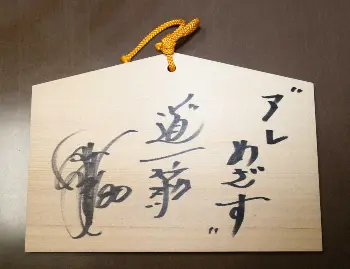 〝アレ
めざす〟
道一筋